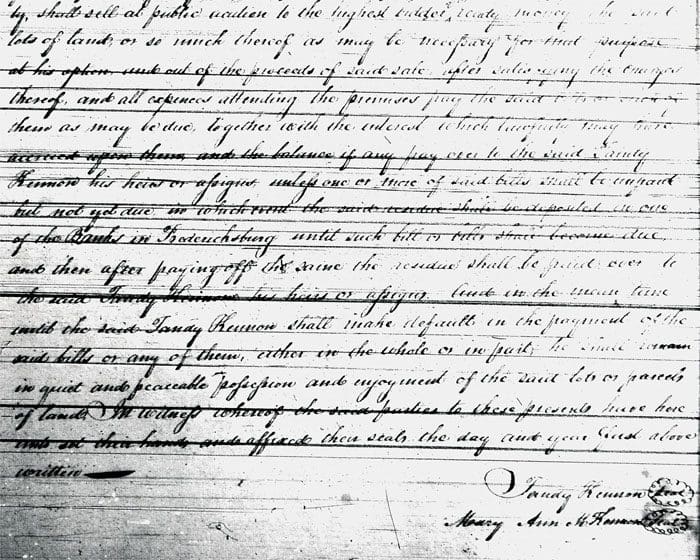 ty, shall sell at public auction to the highest bidder, ready money the said
lots of land, or so much thereof as may be necessary for that purpose
at his option, and out of the proceeds of said sale, after satisfying the charges
thereof, and all expences attending the premises pay the said
them as may be due, together with the interest which lawfully may have
accrued upon them, and the balance if any pay over to the said Tandy
Kennon his heirs or assigns, unless one or more of said bills shall be unpaid
but not yet due, in which event the said residue shall be deposited in one
of the Banks in Fredericksburg until such bill or bills shall become due,
and then after paying off the same the residue shall be paid over to
the said Tandy Kennon his heirs or assigns. And in the mean time
until the said Tandy Kennon shall make default in the payment of the
said bills or any of them, either in the whole or in part, he shall remain
in quiet and peaceable possession and enjoyment of the said lots or parcels
of land. In witness whereof the said parties to these presents have here
unto set their hands and affixed their seals the day and year first above
written
Tandy Kennon Seal
Meary Ann M. Kennon Seal